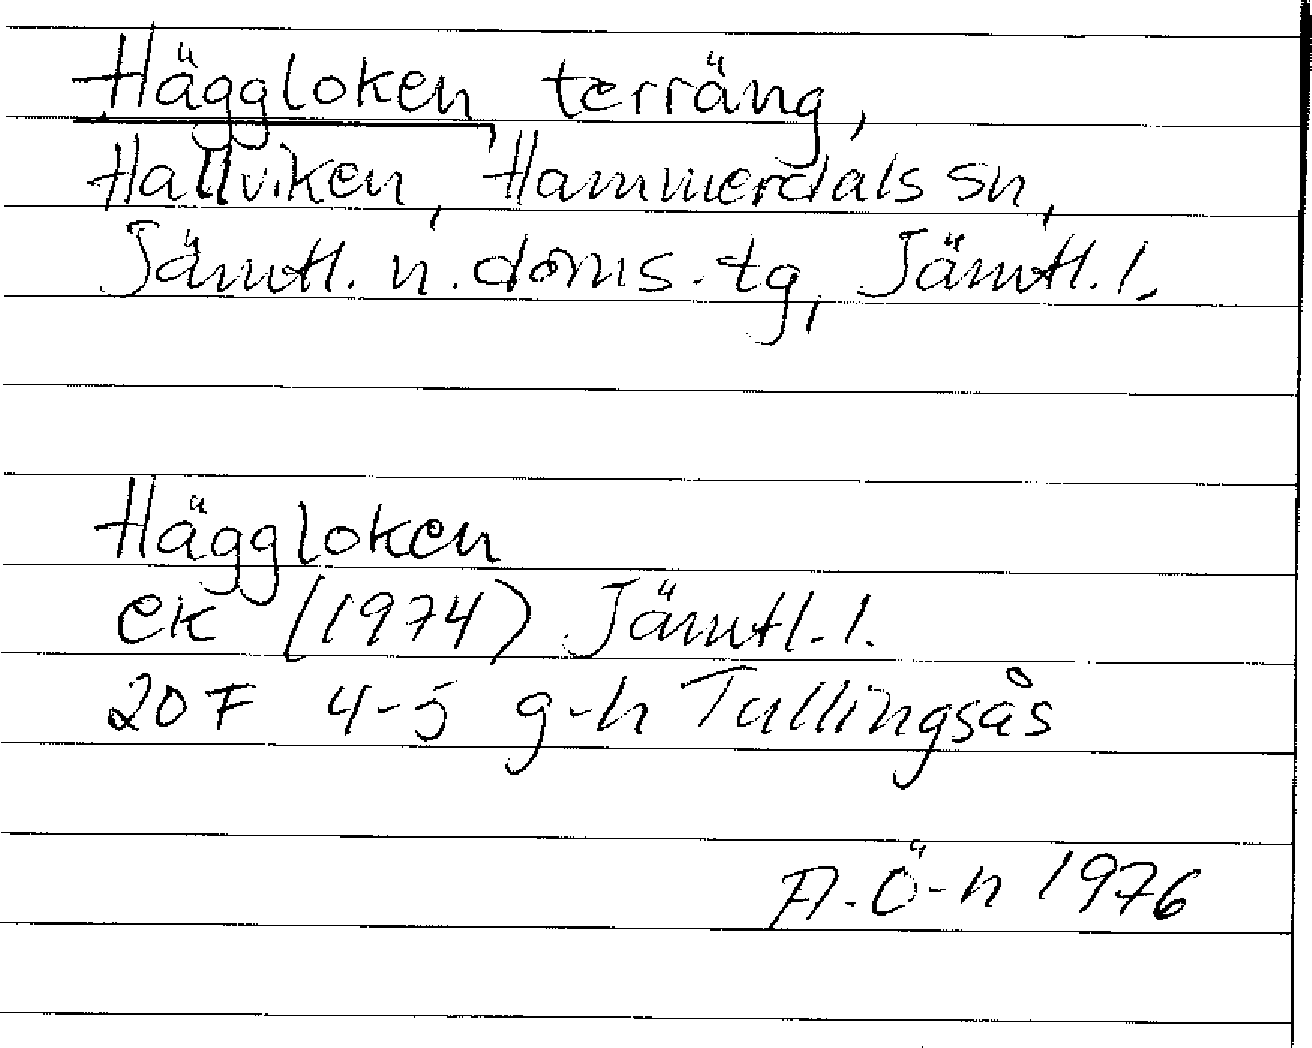 Häggloken, terräng,
Hallviken, Hammerdals sn,
Jämtl. n. doms. tg, Jämtl. l.
Häggloken
ek (1974) Jämtl. l.
20F 4-5 g-h Tullingsås
A-Ö-n 1976